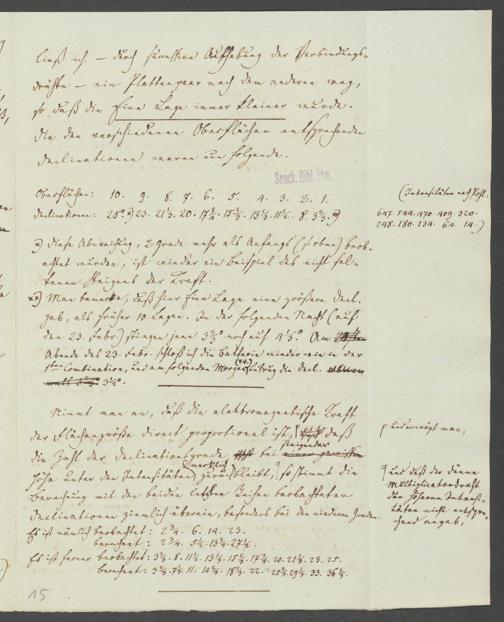 ließ ich – durch successive Aufhebung der Verbindungs-
drähte – ein Plattenpaar nach dem anderen weg,
so daß die Eine Lage immer kleiner wurde.
Die den verschiedenen Oberflächen entsprechenden
Declinationen waren nun folgende.
Senck. Bibl. Ffm.
Oberflächen: 10. 9. 8. 7. 6. 5. 4. 3. 2. 1.
Declinationen: 25°. 23. 21½. 20. 17¾. 15½. 13½. 11½. 8. 3½.
(Intensitäten nach
647. 544. 470. 409. 320.
248. 180. 134. 64. 14.)
diese Abweichung, 2 Grade mehr als Anfangs (oben) beob-
achtet wurden, ist wieder ein Beispiel des nicht sel-
tenen Steigens der Kraft.
Man bemerke, daß hier Eine Lage eine größere Decl.
gab, als früher 10 Lagen. In der folgenden Nacht (auf
den 23. Febr.) stiegen jene 3½° noch auf 4½°. Am
Abende des 23. Febr. schloß ich die Batterie wieder wie in der
1sten Combination, und am folgenden Morgen (24.) betrug die Decl.
3½°.
Nimmt man an, daß die elektromagnetische Kraft
der Flächengröße direct proportional ist, daß
die Zahl der Declinationsgrade bei steigender
Höhe unter den Intensitäten merklich zurückbleibt, so stimmt die
Berechnung mit den beiden letzten Reihen beobachteter
Declinationen ziemlich überein, besonders bei den niederen Graden.
Es ist nämlich beobachtet: 2¾. 6. 14. 23.
berechnet: 2¾. 5½. 13¾. 27½.
Es ist ferner beobachtet: 3½. 8. 11½. 13½. 15½. 17¾. 20. 21½. 23. 25.
berechnet: 3½. 7½. 11. 14¾. 18¼. 22. 25¾. 29½. 33. 36¾.
und erwägt man,
und daß der dünne
Multiplicatordraht
die höheren Intensi-
täten nicht entspre-
chend angab,
15